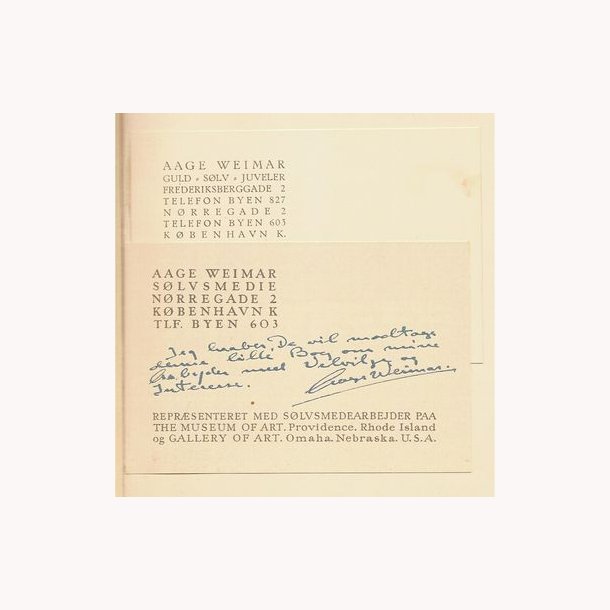 AAGE WEIMAR
GULD » SØLV » JUVELER
FREDERIKSBERGGADE 2
TELEFON BYEN 827
NØRREGADE 2
TELEFON BYEN 603
KØBENHAVN K.
AAGE WEIMAR
SØLVSMEDIE
NØRREGADE 2
KØBENHAVN K
TLF. BYEN 603
Jeg haaber, De vil modtage
denne lille Bog om mine
Arbejder med Velvilje og
Interesse. Aage Weimar.
REPRÆSENTERET MED SØLVSMEDEARBEJDER PAA
THE MUSEUM OF ART. Providence. Rhode Island
og GALLERY OF ART. Omaha. Nebraska. U.S.A.